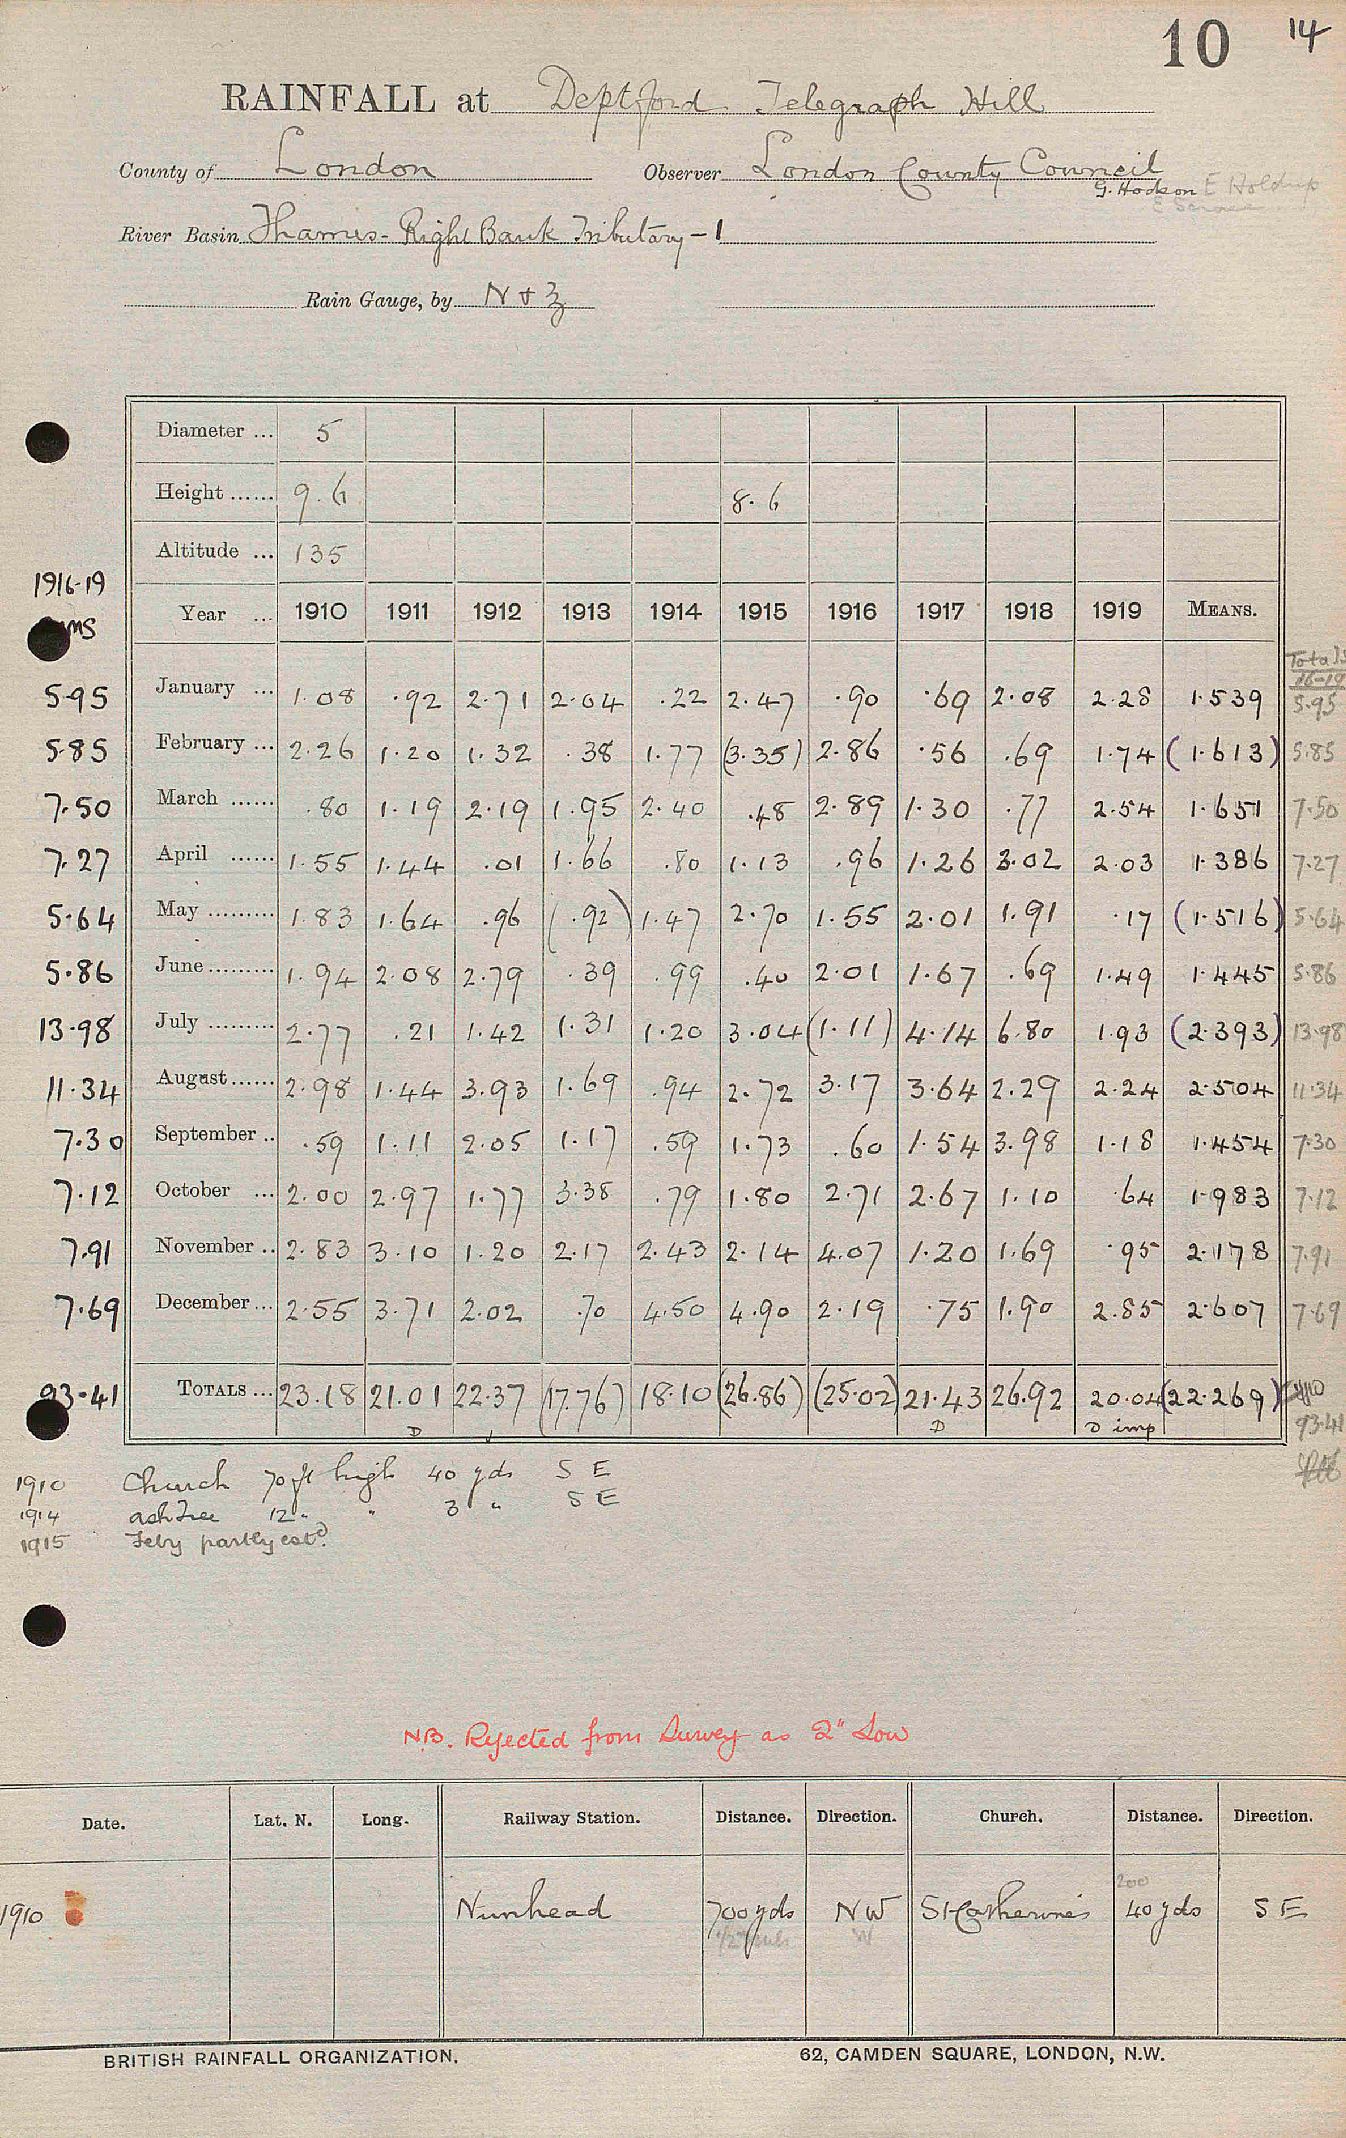 10 14
RAINFALL at Deptford Telegraph Hill
County of London Observer London County Council
G. Hodson E Holdrup
River Basin Thames - Right Bank Tributary - 1
Rain Gauge, by N + Z
Diameter ... 5
Height ...... 9.6 8.6
Altitude ... 135
1916-19
Year ... 1910 1911 1912 1913 1914 1915 1916 1917 1918 1919 MEANS.
Totals
16-19
5.95 January ... 1.08 .92 2.71 2.04 .22 2.47 .90 .69 2.08 2.28 1.539 5.95
5.85 February ... 2.26 1.20 1.32 .38 1.77 (3.35) 2.86 .56 .69 1.74 (1.613) 5.85
7.50 March ...... .80 1.19 2.19 1.95 2.40 .48 2.89 1.30 .77 2.54 1.651 7.50
7.27 April ...... 1.55 1.44 .01 1.66 .80 1.13 .96 1.26 3.02 2.03 1.386 7.27
5.64 May ......... 1.83 1.64 .96 (.92) 1.47 2.70 1.55 2.01 1.91 .17 (1.516) 5.64
5.86 June ......... 1.94 2.08 2.79 .39 .99 .40 2.01 1.67 .69 1.49 1.445 5.86
13.98 July ......... 2.77 .21 1.42 1.31 1.20 3.04 (1.11) 4.14 6.80 1.93 (2.393) 13.98
11.34 August ...... 2.98 1.44 3.93 1.69 .94 2.72 3.17 3.64 2.29 2.24 2.504 11.34
7.30 September .. .59 1.11 2.05 1.17 .59 1.73 .60 1.54 3.98 1.18 1.454 7.30
7.12 October ... 2.00 2.97 1.77 3.38 .79 1.80 2.71 2.67 1.10 .64 1.983 7.12
7.91 November .. 2.83 3.10 1.20 2.17 2.43 2.14 4.07 1.20 1.69 .95 2.178 7.91
7.69 December ... 2.55 3.71 2.02 .70 4.50 4.90 2.19 .75 1.90 2.85 2.607 7.69
93.41 TOTALS ... 23.18 21.01 22.37 (17.76) 18.10 (26.86) (25.02) 21.43 26.92 20.04 (22.269)
D D D imp 93.41
1910 Church 70 ft high 40 yds S E
1914 ash Tree 12 " " 3 " S E
1915 Feby partly estd.
N.B. Rejected from Survey as 2" Low
Date. Lat. N. Long. Railway Station. Distance. Direction. Church. Distance. Direction.
200
1910 Nunhead 700 yds NW St Catherine's 40 yds S E
W
BRITISH RAINFALL ORGANIZATION. 62, CAMDEN SQUARE, LONDON, N.W.